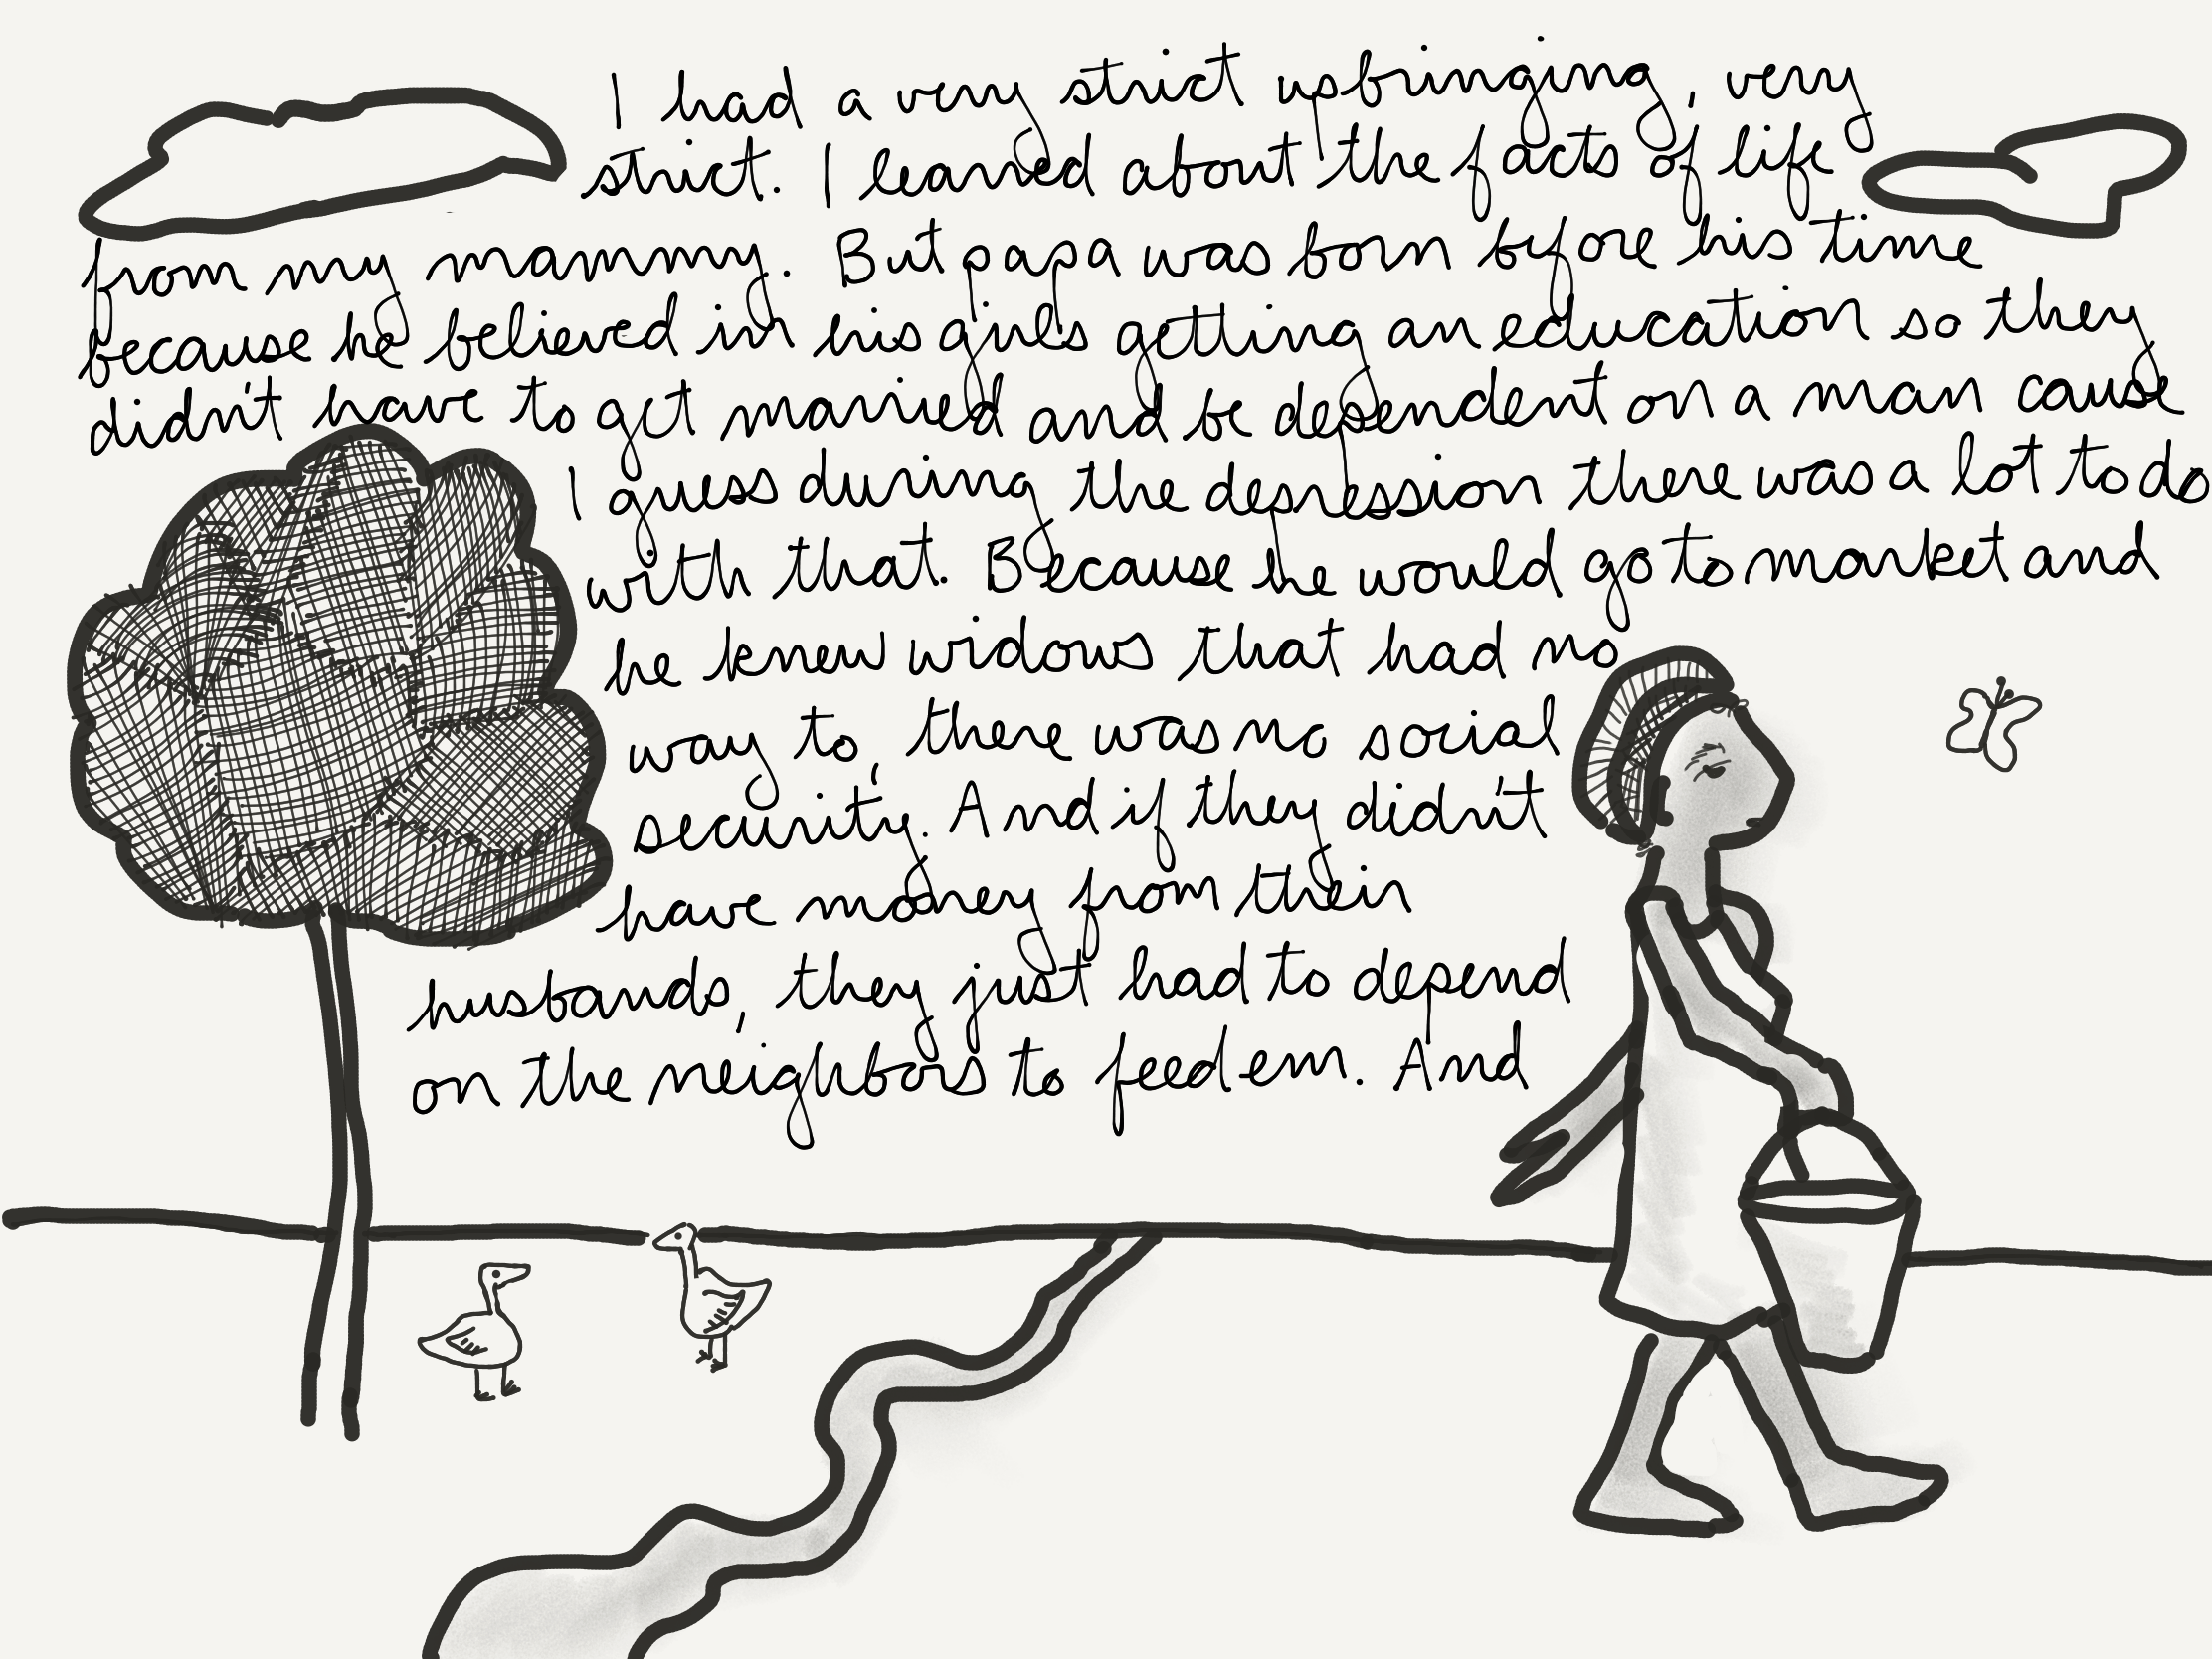 I had a very strict upbringing, very
strict. I learned about the facts of life
from my mammy. But papa was born before his time
because he believed in his girls getting an education so they
didn't have to get married and be dependent on a man cause
I guess during the depression there was a lot to do
with that. Because he would go to market and
he knew widows that had no
way to, there was no social
security. And if they didn't
have money from their
husbands, they just had to depend
on the neighbors to feed em. And